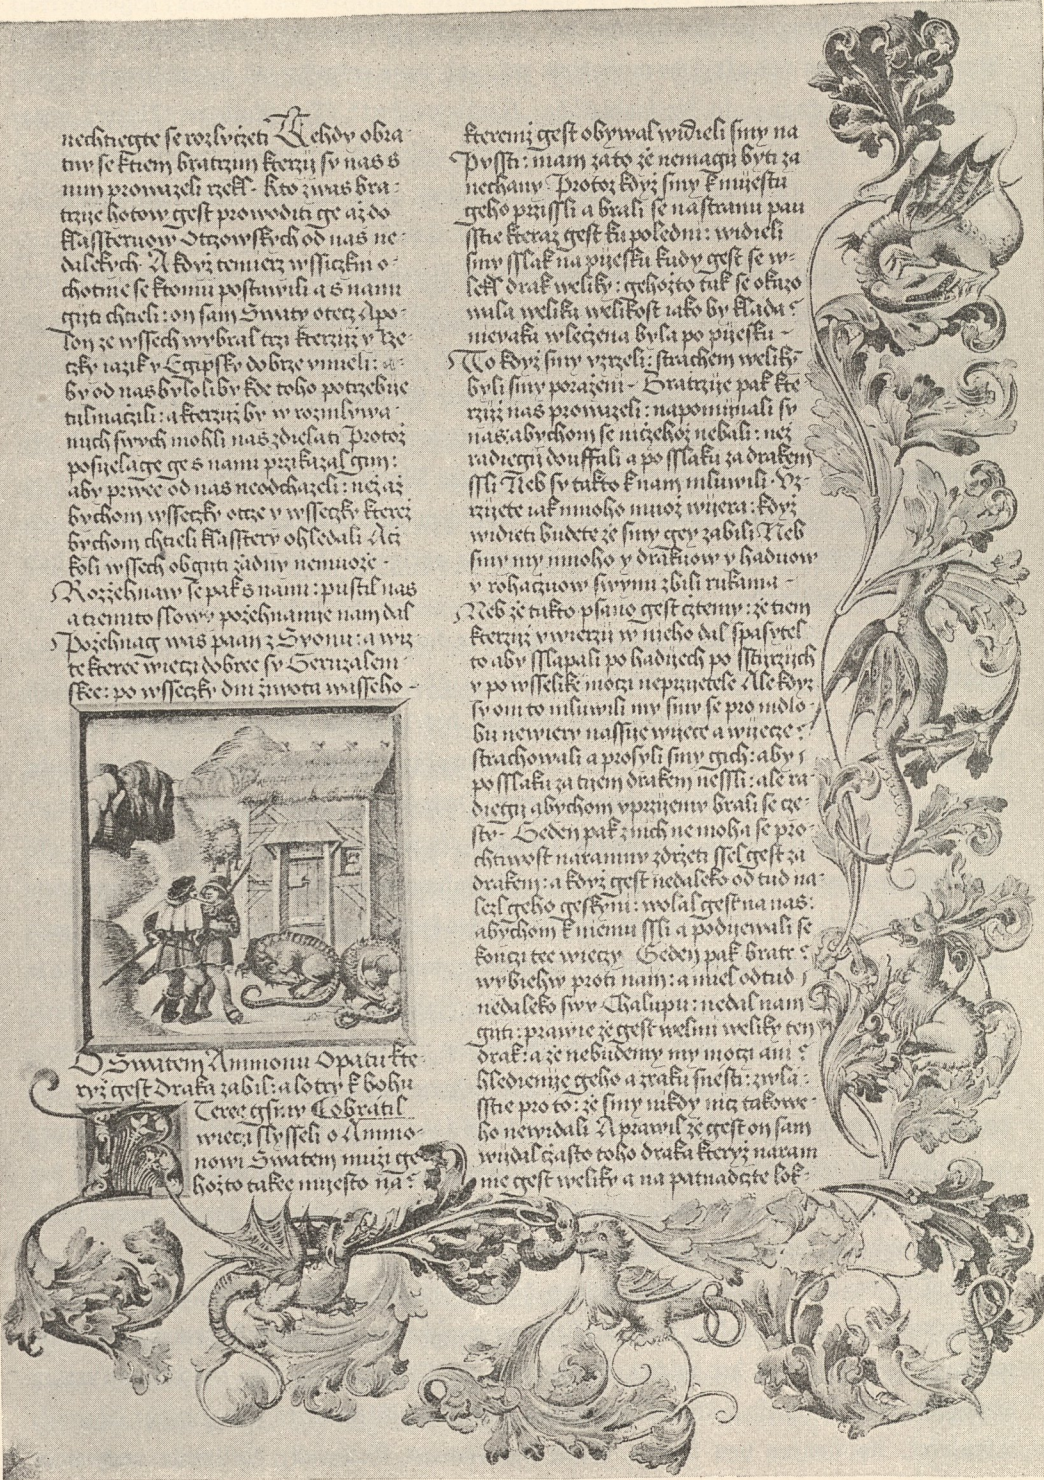 nechtiegte se rozlyczeti Tehdy obra-
tiw se ktiem bratrzim kterzij sy nas s
nim prowazeli rzekl· Kto zwas bra-
trzije hotow gest prowoditi ge az do
klassteruow Otczowskych od nas ne-
dalekych· A kdyz temierz wssiczkni o-
chotnie se ktomu postawili a s nami
gijti chtieli: on sam Swaty otecz Apo-
lon ze wssech wybral trzi kterzijz y rze-
czky iazik y Egipsky dobrze vmieli: a-
by od nas byloliby kde toho potrzebije
tulmaczili: a kterzijz by w rozmlywa-
nijch swych mohli nas zdielati Protoz
posijelage ge s nami przikazal gim:
aby prwee od nas neodchazeli: nez az
bychom wsseczky otcze y wsseczky kterez
bychom chtieli klasstery ohledali Acz
koli wssech obgijti zadny nemuoze·
Rozzehnaw se pak s nami: pustil nas
a tiemito slowy pozehnanije nam dal
Pozehnag was paan z Syonu: a wiz-
te kteree wieczi dobree sy Geruzalem-
skee: po wsseczky dni ziwota wasseho-
O Swatem Ammonu Opatu kte-
ryz gest draka zabil: a lotry k bohu
Terez gsmy Cobratil
wieczi slysseli o Ammo-
nowi Swatem muzi ge
hozto takee mijesto na:
kteremz gest obywal widieli smy na
Pussti: mam zato ze nemagij byti za
nechany· Protoz kdyz smy k mijestu
geho przissli a brali se nastranu pau
sstie kteraz gest ku poledni: widieli
smy sslak na pijesku kudy gest se w-
lekl drak weliky: gehozto tak se okazo
wala welika welikost iako by klada
nieyaka wleczena byla po pijesku-
To kdyz smy vzrzeli: strachem welikym
byli smy porazeni- Bratrzije pak kte
rzijz nas prowazeli: napominali sy
nas abychom se niczehoz nebali: nez
radiegij douffali a po sslaku za drakem
ssli Neb sy takto k nam mluwili· Vz-
rzijete iak mnoho muoz wijera: kdyz
widieti budete ze smy gey zabili Neb
smy my mnoho y drakuow y haduow
y rohaczuow swymi zbili rukama-
Neb ze takto psano gest cztemy: ze tiem
kterzijz vwierzij w nieho dal spasytel
to aby sslapali po hadijech po sstijrzijch
y po wsselike moczi neprzijetele Ale kdyz
sy oni to mluwili my smy se pro mdlo-
bu newiery nassije wijece a wijecze
strachowali a prosyli smy gich: aby
po sslaku za tijem drakem nessli: ale ra-
diegij abychom vprzijemy brali se cze-
sty· Geden pak z nich nemoha se pro-
chtiwost naramny zdrzeti ssel gest za
drakem: a kdyz gest nedaleko od tud na-
lezl geho geskyni: wolal gest na nas:
abychom k niemu ssli a podijewali se
konczi tee wieczy Geden pak bratr
wybiehw proti nam: a miel odtud
nedaleko swy Chalupu: nedal nam
gijti: prawie ze gest welmi weliky ten
drak: a ze nebudemy my moczi ani
hledienije geho a zraku snesti: zwla-
sstie pro to: ze smy nikdy nicz takowe-
ho newidali A prawil ze gest on sam
wijdal czasto toho draka kteryz naram
nie gest weliky a na patnadczte lok-